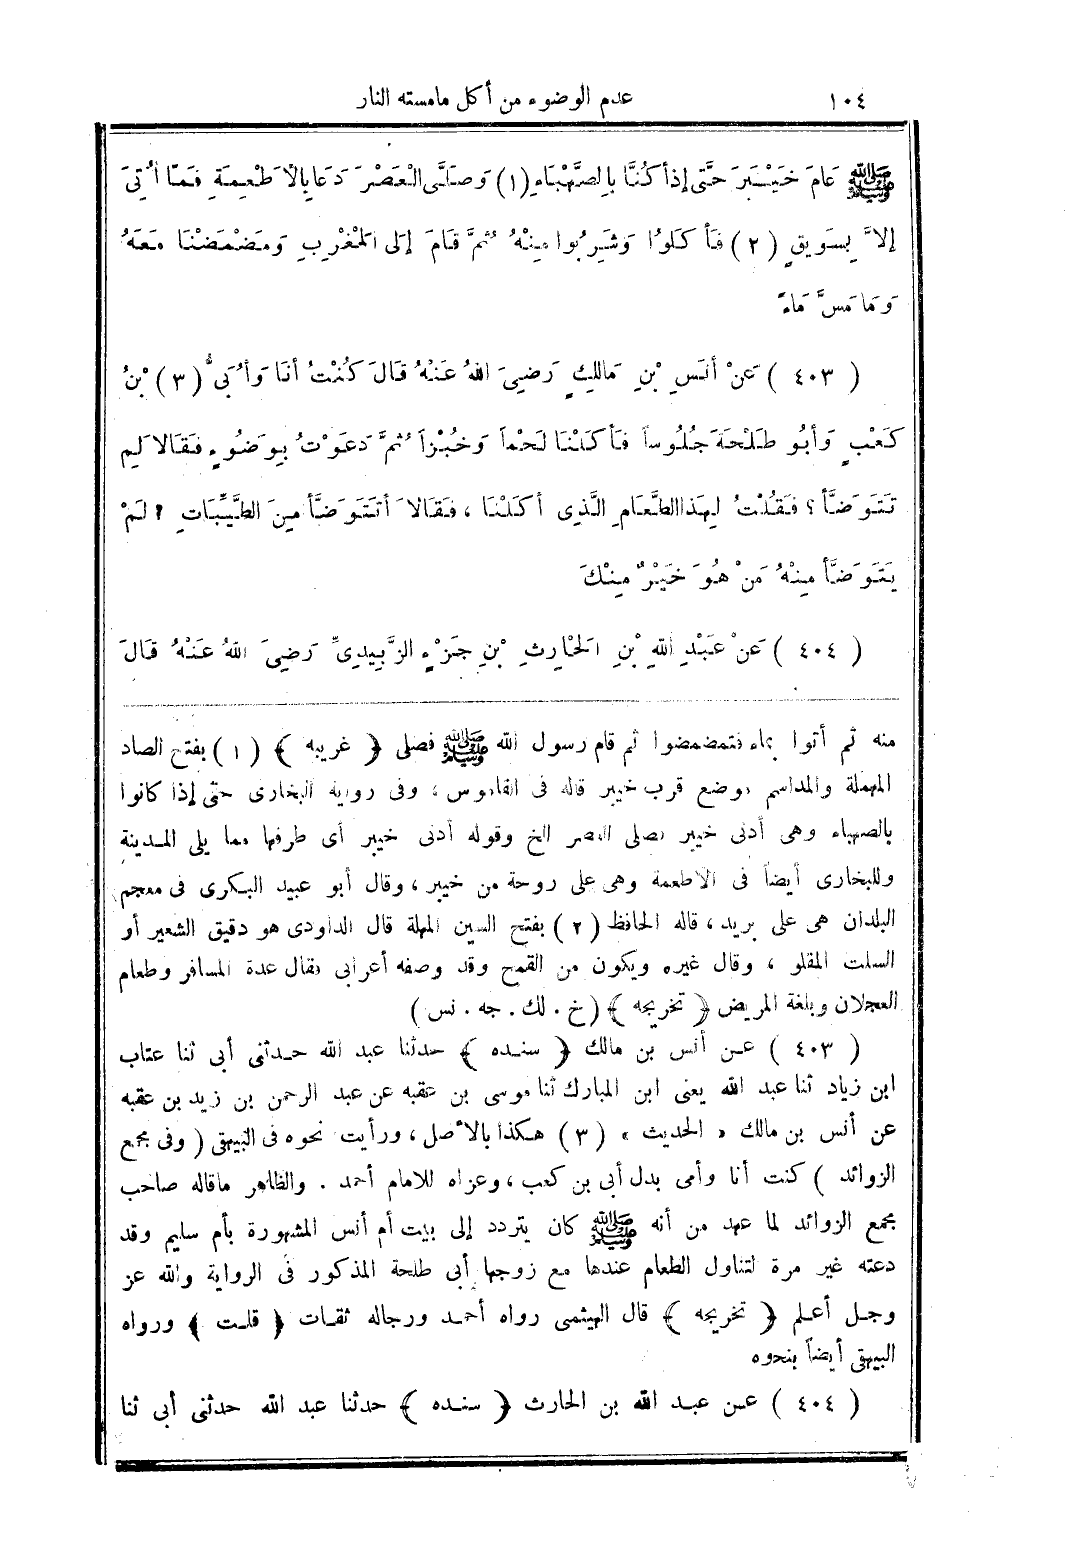 ١٠٤ عدم الوضوء من أكل مامسته النار
ﷺ عَامَ خَيْبَرَ حَتَّى إِذَا كُنَّا بِالصَّهْبَاءِ (١) وَصَلَّى الْعَصْرَ دَعَا بِالْأَطْعِمَةِ فَمَا أُتِيَ
إِلاَّ بِسَوِيقٍ (٢) فَأَكَلُوا وَشَرِبُوا مِنْهُ ثُمَّ قَامَ إِلَى الْمَغْرِبِ وَمَضْمَضْنَا مَعَهُ
وَمَا مَسَّ مَاءً
( ٤٠٣ ) عَنْ أَنَسِ بْنِ مَالِكٍ رَضِيَ اللهُ عَنْهُ قَالَ كُنْتُ أَنَا وَأُبَيُّ (٣) بْنُ
كَعْبٍ وَأَبُو طَلْحَةَ جُلُوساً فَأَكَلْنَا لَحْماً وَخُبْزاً ثُمَّ دَعَوْتُ بِوَضُوءٍ فَقَالاَ لِمَ
تَتَوَضَّأُ؟ فَقُلْتُ لِهَذَا الطَّعَامِ الَّذِى أَكَلْنَا ، فَقَالاَ أَتَتَوَضَّأُ مِنَ الطَّيِّبَاتِ ؟ لَمْ
يَتَوَضَّأْ مِنْهُ مَنْ هُوَ خَيْرٌ مِنْكَ
( ٤٠٤ ) عَنْ عَبْدِ اللهِ بْنِ الْحَارِثِ بْنِ جَزْءٍ الزُّبَيْدِىِّ رَضِيَ اللهُ عَنْهُ قَالَ
منه ثم أتوا بماء فتمضمضوا ثم قام رسول الله ﷺ فصلى ﴿ غريبه ﴾ (١) بفتح الصاد
المهملة والمد اسم موضع قرب خيبر قاله فى القاموس ، وفى رواية البخارى حتى إذا كانوا
بالصهباء وهى أدنى خيبر فصلى العصر الخ وقوله أدنى خيبر أى طرفها مما يلى المدينة
وللبخارى أيضاً فى الاطعمة وهى على روحة من خيبر ، وقال أبو عبيد البكرى فى معجم
البلدان هى على بريد ، قاله الحافظ (٢) بفتح السين المهلة قال الداودى هو دقيق الشعير أو
السلت المقلو ، وقال غيره ويكون من القمح وقد وصفه أعرابى فقال عدة المسافر وطعام
العجلان وبلغة المريض ﴿ تخريجه ﴾ (خ . لك . جه . نس )
( ٤٠٣ ) عن أنس بن مالك ﴿ سنده ﴾ حدثنا عبد الله حدثنى أبى ثنا عتاب
ابن زياد ثنا عبد الله يعنى ابن المبارك ثنا موسى بن عقبه عن عبد الرحمن بن زيد بن عقبه
عن أنس بن مالك « الحديث » (٣) هكذا بالأصل ، ورأيت نحوه فى البيهقى ( وفى مجمع
الزوائد ) كنت أنا وأمى بدل أبى بن كعب ، وعزاه للامام أحمد . والظاهر ماقاله صاحب
مجمع الزوائد لما عهد من أنه ﷺ كان يتردد إلى بيت أم أنس المشهورة بأم سليم وقد
دعته غير مرة لتناول الطعام عندها مع زوجها أبى طلحة المذكور فى الرواية والله عز
وجل أعلم ﴿ تخريجه ﴾ قال الهيثمى رواه أحمد ورجاله ثقات ﴿ قلت ﴾ ورواه
البيهقى أيضاً بنحوه
( ٤٠٤ ) عن عبد الله بن الحارث ﴿ سنده ﴾ حدثنا عبد الله حدثنى أبى ثنا